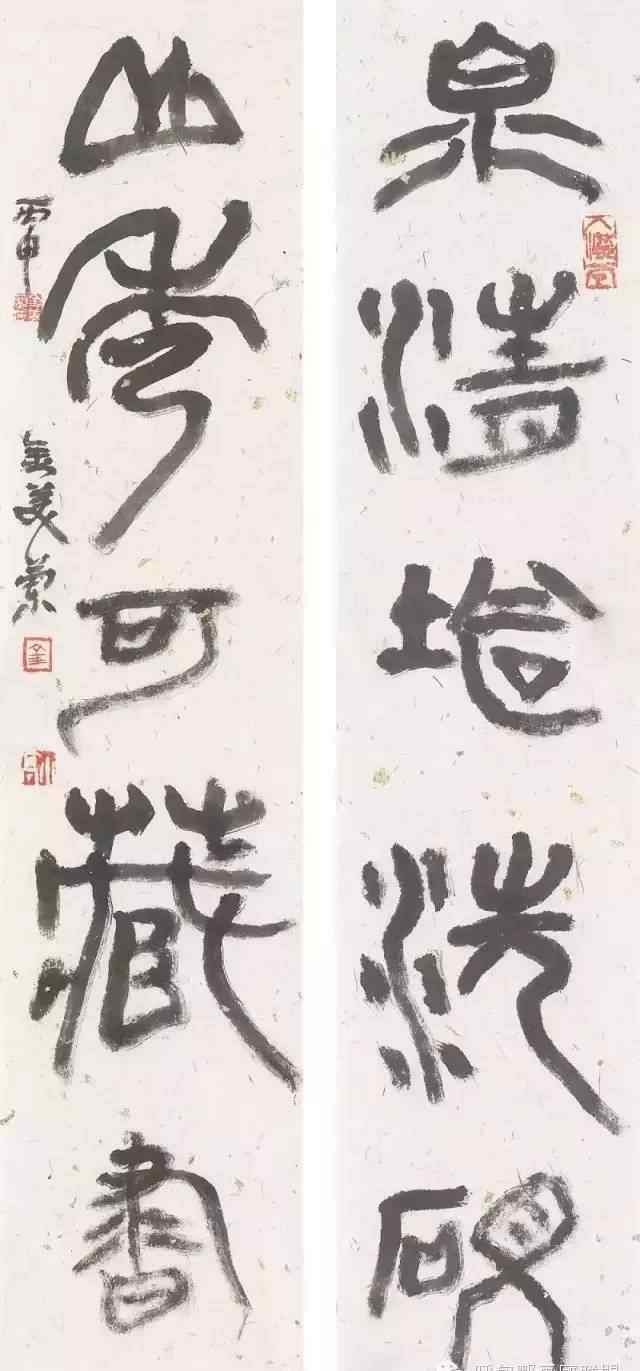 泉清堪洗硯
山秀可藏書
丙申
金美